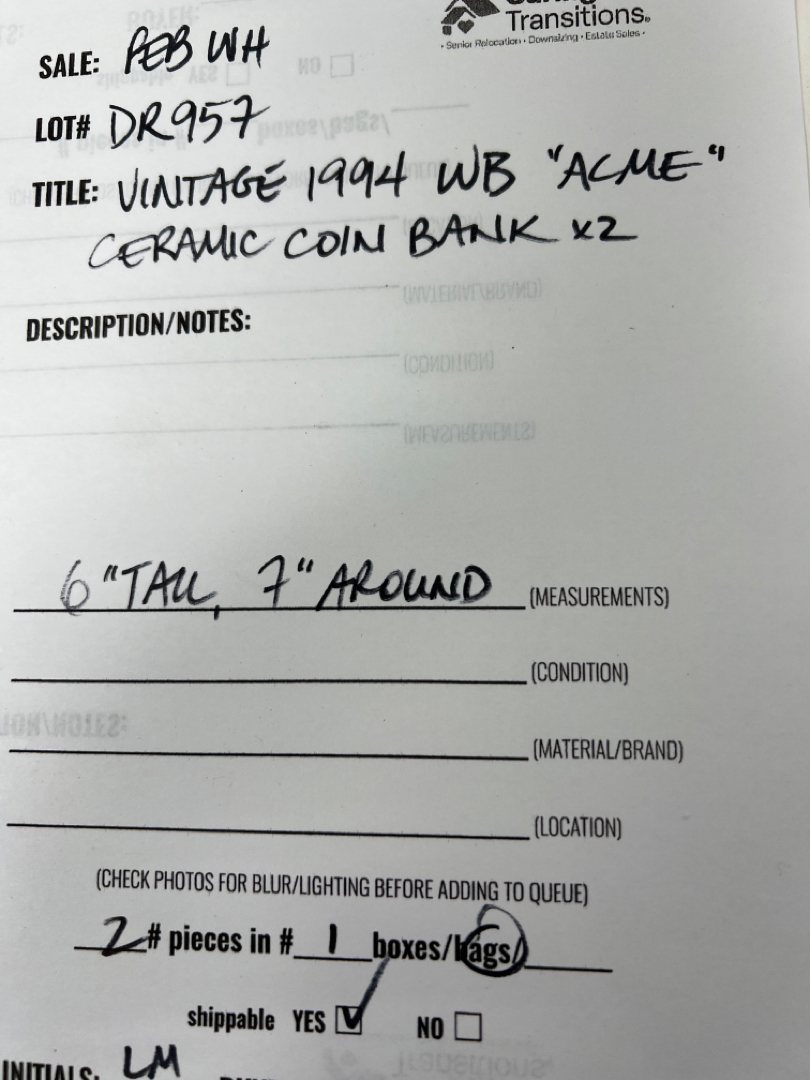 Transitions®
• Senior Relocation • Downsizing • Estate Sales •
SALE: PEB WH
LOT# DR957
TITLE: VINTAGE 1994 WB "ACME"
CERAMIC COIN BANK x2
DESCRIPTION/NOTES:
6" TALL, 7" AROUND (MEASUREMENTS)
(CONDITION)
(MATERIAL/BRAND)
(LOCATION)
(CHECK PHOTOS FOR BLUR/LIGHTING BEFORE ADDING TO QUEUE)
2 # pieces in # 1 boxes/bags/
shippable YES ☑ NO ☐
INITIALS: LM